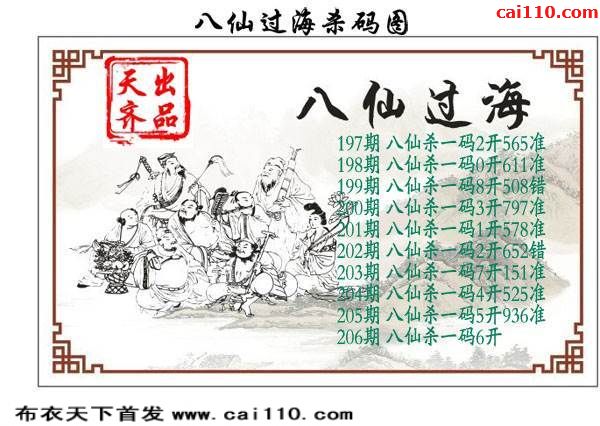 八仙过海杀码图
cai110.com
天出
齐品
八仙过海
197期 八仙杀一码2开565准
198期 八仙杀一码0开611准
199期 八仙杀一码8开508错
200期 八仙杀一码3开797准
201期 八仙杀一码1开578准
202期 八仙杀一码2开652错
203期 八仙杀一码7开151准
204期 八仙杀一码4开525准
205期 八仙杀一码5开936准
206期 八仙杀一码6开
布衣天下首发 www.cai110.com